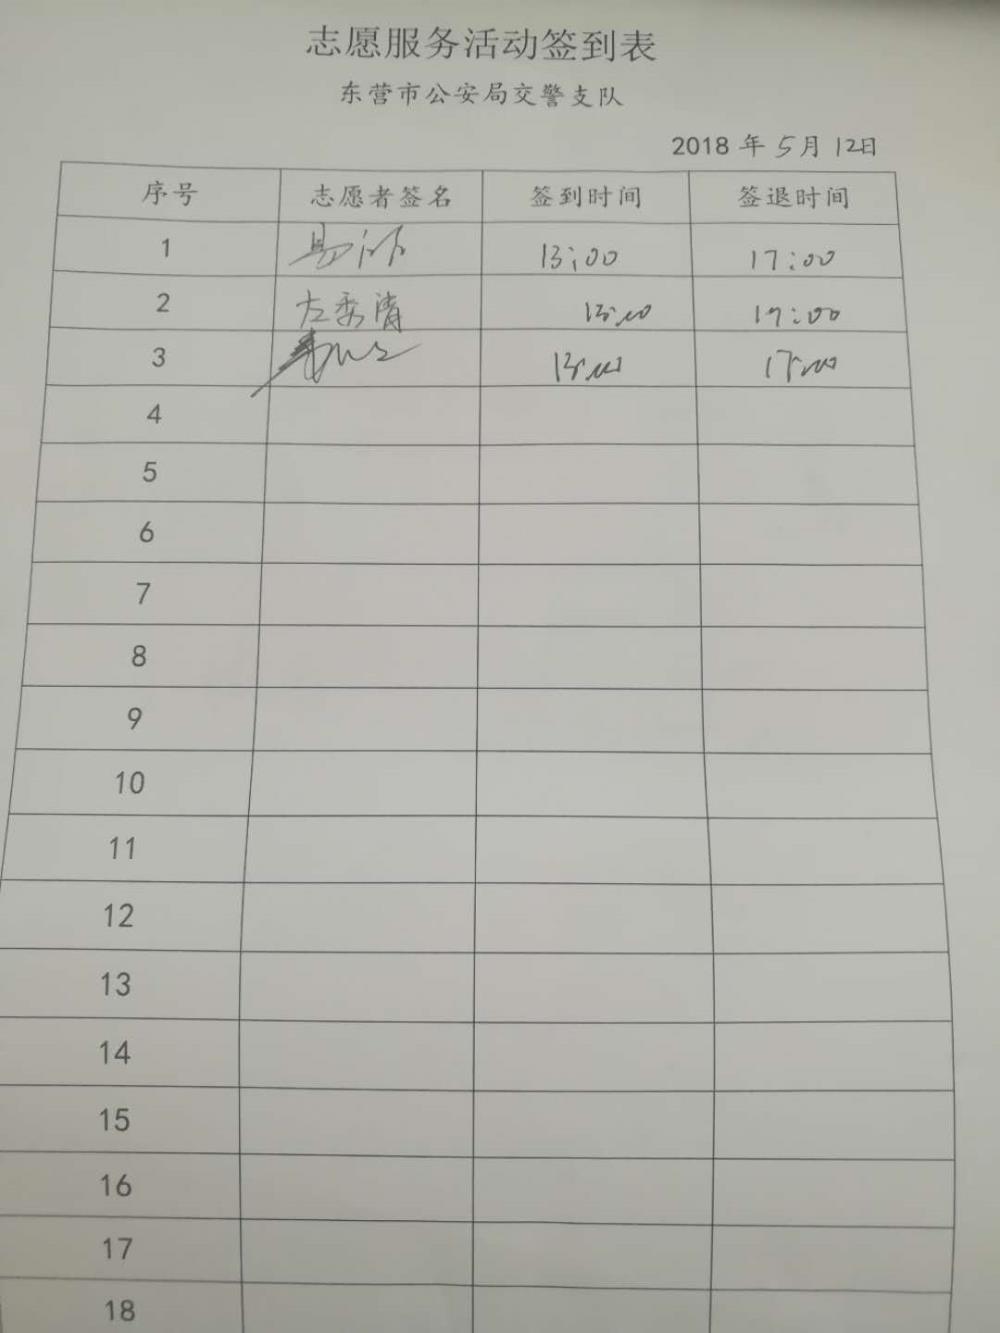 志愿服务活动签到表
东营市公安局交警支队
2018 年 5月 12日
序号 志愿者签名 签到时间 签退时间
1 13:00 17:00
2 左秀清 13:00 17:00
3 13:00 17:00
4
5
6
7
8
9
10
11
12
13
14
15
16
17
18